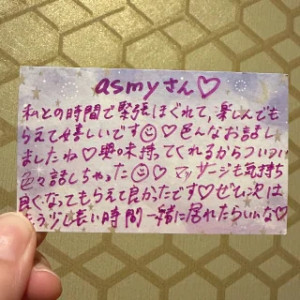 asmyさん♡
私との時間で緊張ほぐれて,楽しんでも
らえて嬉しいです☺♡色んなお話し
ましたね♡興味持ってくれるからついつい
色々話しちゃった☺♡マッサージも気持ち
良くなってもらえて良かったです♡ぜひ次は
もう少し長い時間一緒に居れたらいいな♡